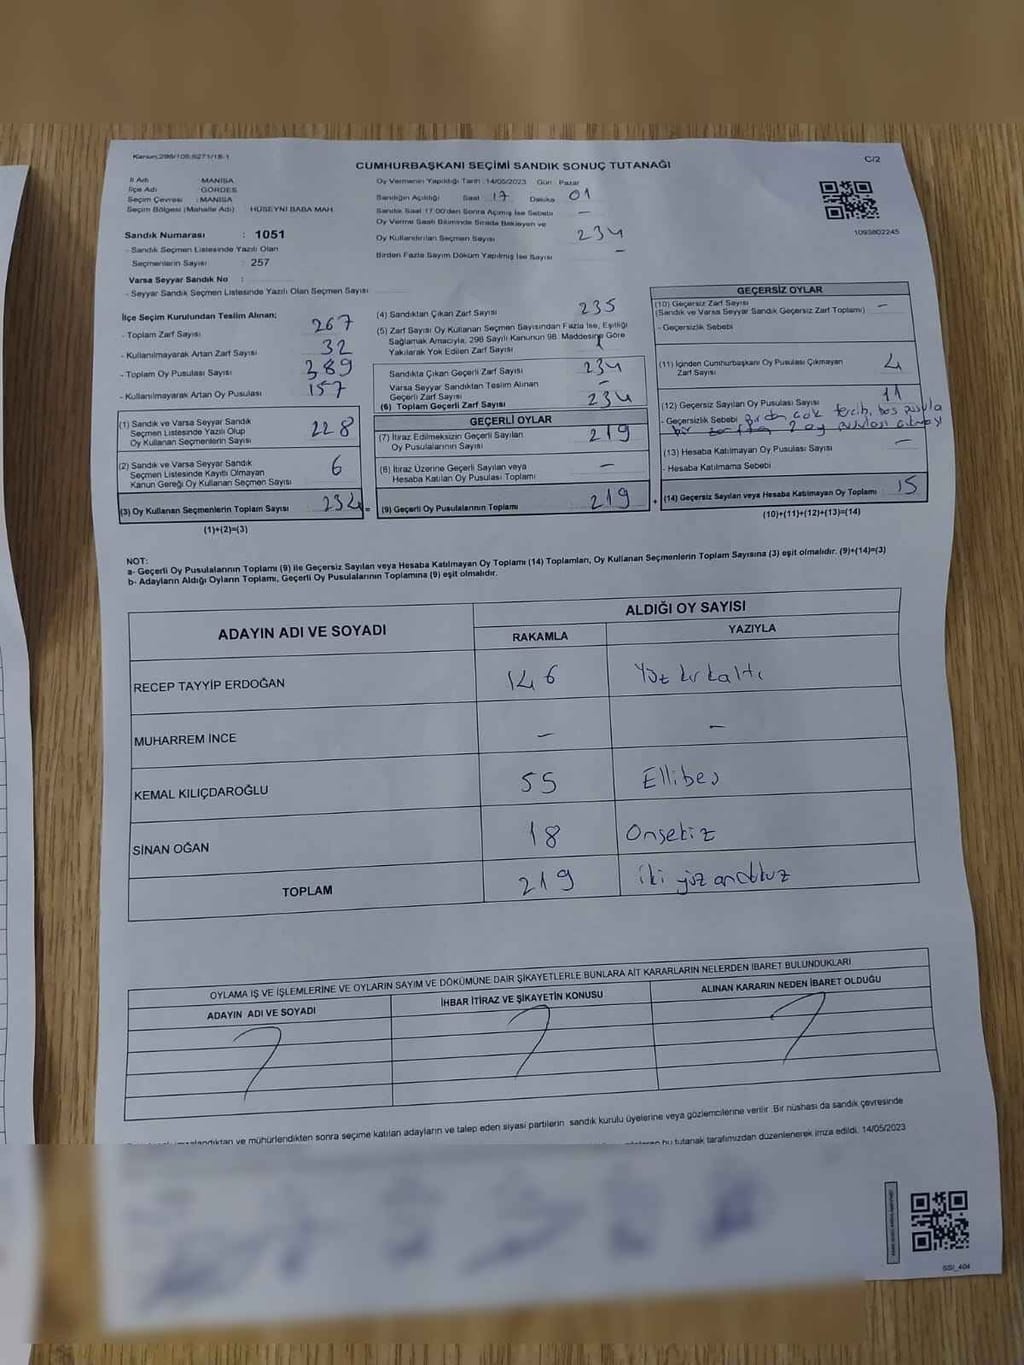 Kanun:298/105;6271/18-1
CUMHURBAŞKANI SEÇİMİ SANDIK SONUÇ TUTANAĞI
C/2
İl Adı MANİSA
İlçe Adı GÖRDES
Seçim Çevresi :MANİSA
Seçim Bölgesi (Mahalle Adı) : HÜSEYNİ BABA MAH.
Sandık Numarası : 1051
- Sandık Seçmen Listesinde Yazılı Olan
Seçmenlerin Sayısı : 257
Varsa Seyyar Sandık No :
- Seyyar Sandık Seçmen Listesinde Yazılı Olan Seçmen Sayısı
Oy Vermenin Yapıldığı Tarih :14/05/2023 Gün : Pazar
Sandığın Açıldığı Saat 17 Dakika 01
Sandık Saat 17.00'den Sonra Açılmış İse Sebebi —
Oy Verme Saati Bitiminde Sırada Bekleyen ve
Oy Kullandırılan Seçmen Sayısı 234
Birden Fazla Sayım Döküm Yapılmış İse Sayısı —
1093802245
İlçe Seçim Kurulundan Teslim Alınan;
- Toplam Zarf Sayısı 267
- Kullanılmayarak Artan Zarf Sayısı 32
- Toplam Oy Pusulası Sayısı 389
- Kullanılmayarak Artan Oy Pusulası 157
(1) Sandık ve Varsa Seyyar Sandık
Seçmen Listesinde Yazılı Olup
Oy Kullanan Seçmenlerin Sayısı 228
(2) Sandık ve Varsa Seyyar Sandık
Seçmen Listesinde Kayıtlı Olmayan
Kanun Gereği Oy Kullanan Seçmen Sayısı 6
(3) Oy Kullanan Seçmenlerin Toplam Sayısı 234 =
(1)+(2)=(3)
(4) Sandıktan Çıkan Zarf Sayısı 235
(5) Zarf Sayısı Oy Kullanan Seçmen Sayısından Fazla İse, Eşitliği
Sağlamak Amacıyla, 298 Sayılı Kanunun 98. Maddesine Göre
Yakılarak Yok Edilen Zarf Sayısı 1
Sandıkta Çıkan Geçerli Zarf Sayısı 234
Varsa Seyyar Sandıktan Teslim Alınan
Geçerli Zarf Sayısı —
(6) Toplam Geçerli Zarf Sayısı 234
GEÇERLİ OYLAR
(7) İtiraz Edilmeksizin Geçerli Sayılan
Oy Pusulası Sayısı 219
(8) İtiraz Üzerine Geçerli Sayılan veya
Hesaba Katılan Oy Pusulası Toplamı —
(9) Geçerli Oy Pusulalarının Toplamı 219 +
GEÇERSİZ OYLAR
(10) Geçersiz Zarf Sayısı —
(Sandık ve Varsa Seyyar Sandık Geçersiz Zarf Toplamı)
- Geçersizlik Sebebi
(11) İçinden Cumhurbaşkanı Oy Pusulası Çıkmayan
Zarf Sayısı 4
(12) Geçersiz Sayılan Oy Pusulası Sayısı 11
- Geçersizlik Sebebi Birden çok tercih, boş pusula
bir zarftan 2 oy pusulası çıkması
(13) Hesaba Katılmayan Oy Pusulası Sayısı —
- Hesaba Katılmama Sebebi
(14) Geçersiz Sayılan veya Hesaba Katılmayan Oy Toplamı 15
(10)+(11)+(12)+(13)=(14)
NOT:
a- Geçerli Oy Pusulalarının Toplamı (9) ile Geçersiz Sayılan veya Hesaba Katılmayan Oy Toplamı (14) Toplamları, Oy Kullanan Seçmenlerin Toplam Sayısına (3) eşit olmalıdır. (9)+(14)=(3)
b- Adayların Aldığı Oyların Toplamı, Geçerli Oy Pusulalarının Toplamına (9) eşit olmalıdır.
ADAYIN ADI VE SOYADI
ALDIĞI OY SAYISI
RAKAMLA YAZIYLA
RECEP TAYYİP ERDOĞAN 146 Yüz kırkaltı
MUHARREM İNCE — —
KEMAL KILIÇDAROĞLU 55 Ellibeş
SİNAN OĞAN 18 Onsekiz
TOPLAM 219 iki yüz ondokuz
OYLAMA İŞ VE İŞLEMLERİNE VE OYLARIN SAYIM VE DÖKÜMÜNE DAİR ŞİKAYETLERLE BUNLARA AİT KARARLARIN NELERDEN İBARET BULUNDUKLARI
ADAYIN ADI VE SOYADI İHBAR İTİRAZ VE ŞİKAYETİN KONUSU ALINAN KARARIN NEDEN İBARET OLDUĞU
ve mühürlendikten sonra seçime katılan adayların ve talep eden siyasi partilerin sandık kurulu üyelerine veya gözlemcilerine verilir. Bir nüshası da sandık çevresinde
bu tutanak tarafımızdan düzenlenerek imza edildi. 14/05/2023
SSI_404